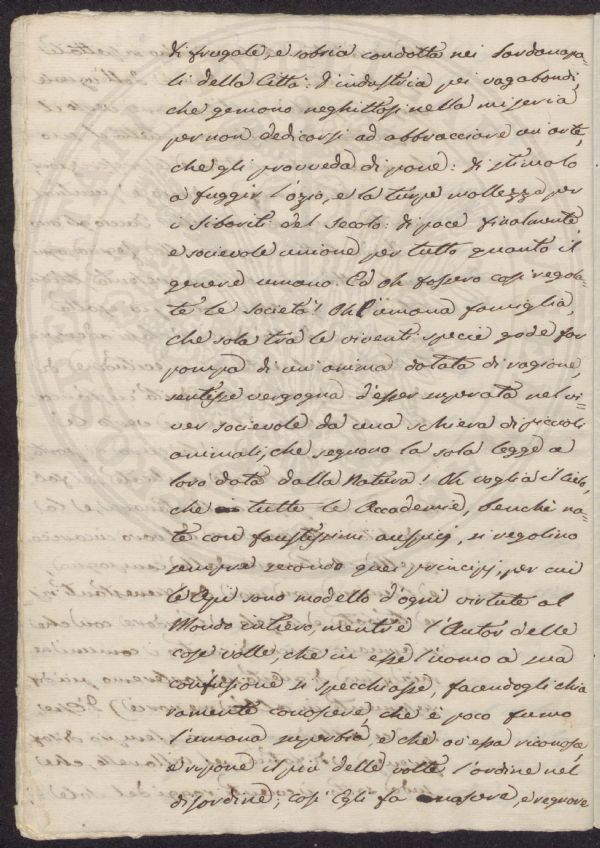 di frugale, e sobria condotta nei Sardanapa-
li della Città: d'industria pei vagabondi,
che gemono neghittosi nella miseria
per non dedicarsi ad abbracciare un'arte,
che gli provveda di pane: di stimolo
a fuggir l'ozio, e la turpe mollezza per
i Sibariti del secolo: di pace finalmente,
e socievole unione per tutto quanto il
genere umano. Ed oh fossero così regola-
te le società! Oh l'umana famiglia,
che sola trà le viventi specie gode far
pompa di un'anima dotata di ragione,
sentisse vergogna d'esser superata nel vi-
ver socievole da una schiera di piccoli
animali, che seguono la sola legge a
loro data dalla Natura! Oh voglia il Cielo,
che tutte le Accademie, benchè na-
te con faustissimi auspicj, si regolino
sempre secondo quei principj, per cui
le Api sono modello d'ogni virtute al
Mondo intiero, mentre l'Autor delle
cose volle, che in esse l'uomo a sua
confusione si specchiasse, facendogli chia-
ramente conoscere, che è poco fumo
l'umana superbia, e che ov'essa riconosce,
e ripone il più delle volte l'ordine nel
disordine; così Egli fa nascere, e regnare